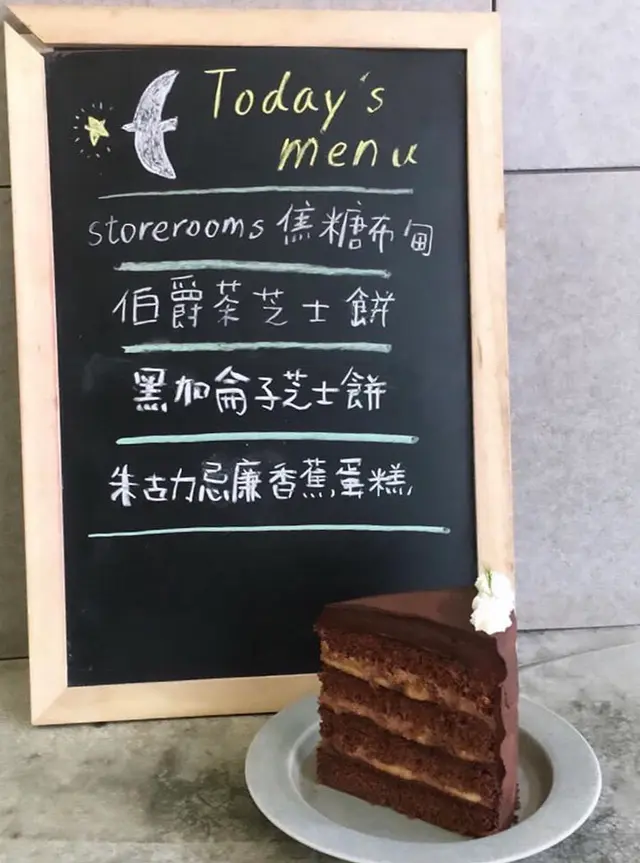 Today's
menu
storerooms 焦糖布甸
伯爵茶芝士餅
黑加侖子芝士餅
朱古力忌廉香蕉蛋糕